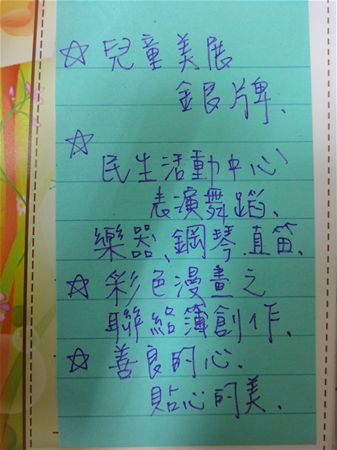 ☆ 兒童美展
銀牌、
☆
民生活動中心
表演舞蹈、
樂器、鋼琴、直笛、
☆ 彩色漫畫之
聯絡簿創作、
☆ 善良的心、
貼心的美、